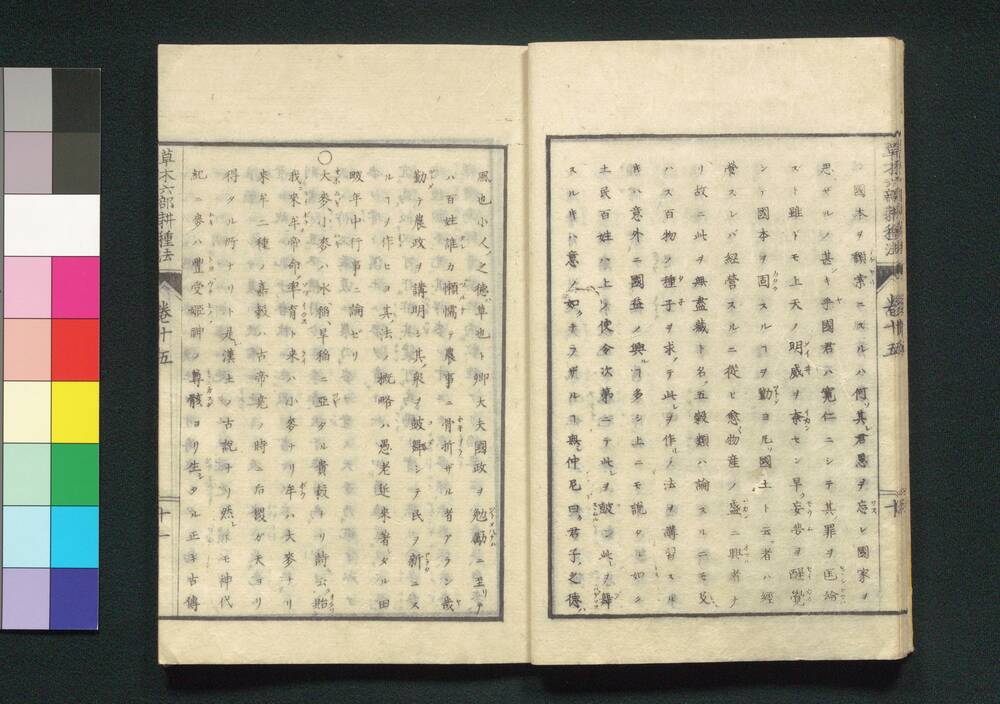 國本ヲ顓宗ニスルハ何ソ其君恩ヲ忘レ國家ヲ
思ザルノ甚キ乎國君ハ寛仁ニシテ其罪ヲ匡綸
ズト雖ドモ上天ノ明威ヲ奈セン早ク妄昏ヲ醒覺
シテ國本ヲ固スルコヲ勤ヨ凡ソ國土ト云者ハ經
營スレバ經營スルニ從ヒ愈〻物産ノ盛ニ興者ナ
リ故ニ此ヲ無盡藏ト名ク五穀類ハ論スルニモ及
ハス百物ノ種子ヲ求テ此ヲ作リノ法ヲ講習スル
キハ意外ニ國益ノ興ルコ多シ上ニモ説タル如シ
土民百姓ハ上ノ使令次第ニテ此ヲ皷シ此ヲ舞
スルキハ意ノ如クナラザルコ無シ仲尼曰君子之德
風也小人之德草也ト卿大夫國政ヲ勉勵ニ至リテ
ハ百姓誰カ懶惰テ農事ニ骨折ザル者アラン哉
勤テ農政ヲ講明シ其衆ヲ皷舞シテ民ヲ新ニス
ルコヲ作ヒヨ其法ノ概略ハ愚老近來著タル田
畯年中行事ニ論ゼリ
〇大麥小麥ハ水稲早稲ニ亞タル貴穀ナリ詩云貽
我來牟帝命率育ト來ハ小麥ナリ牟ハ大麥ナリ
來牟二種ノ嘉穀ハ古帝堯ノ時ニ后稷ガ天ヨリ
得タル所ナリト是漢土ノ古說ナリ然レモ神代
紀ニ麥ハ豐受姫神ノ尊骸ヨリ生シタル正キ古傳
草木六部耕種法 卷十五 十
草木六部耕種法 卷十五 十一